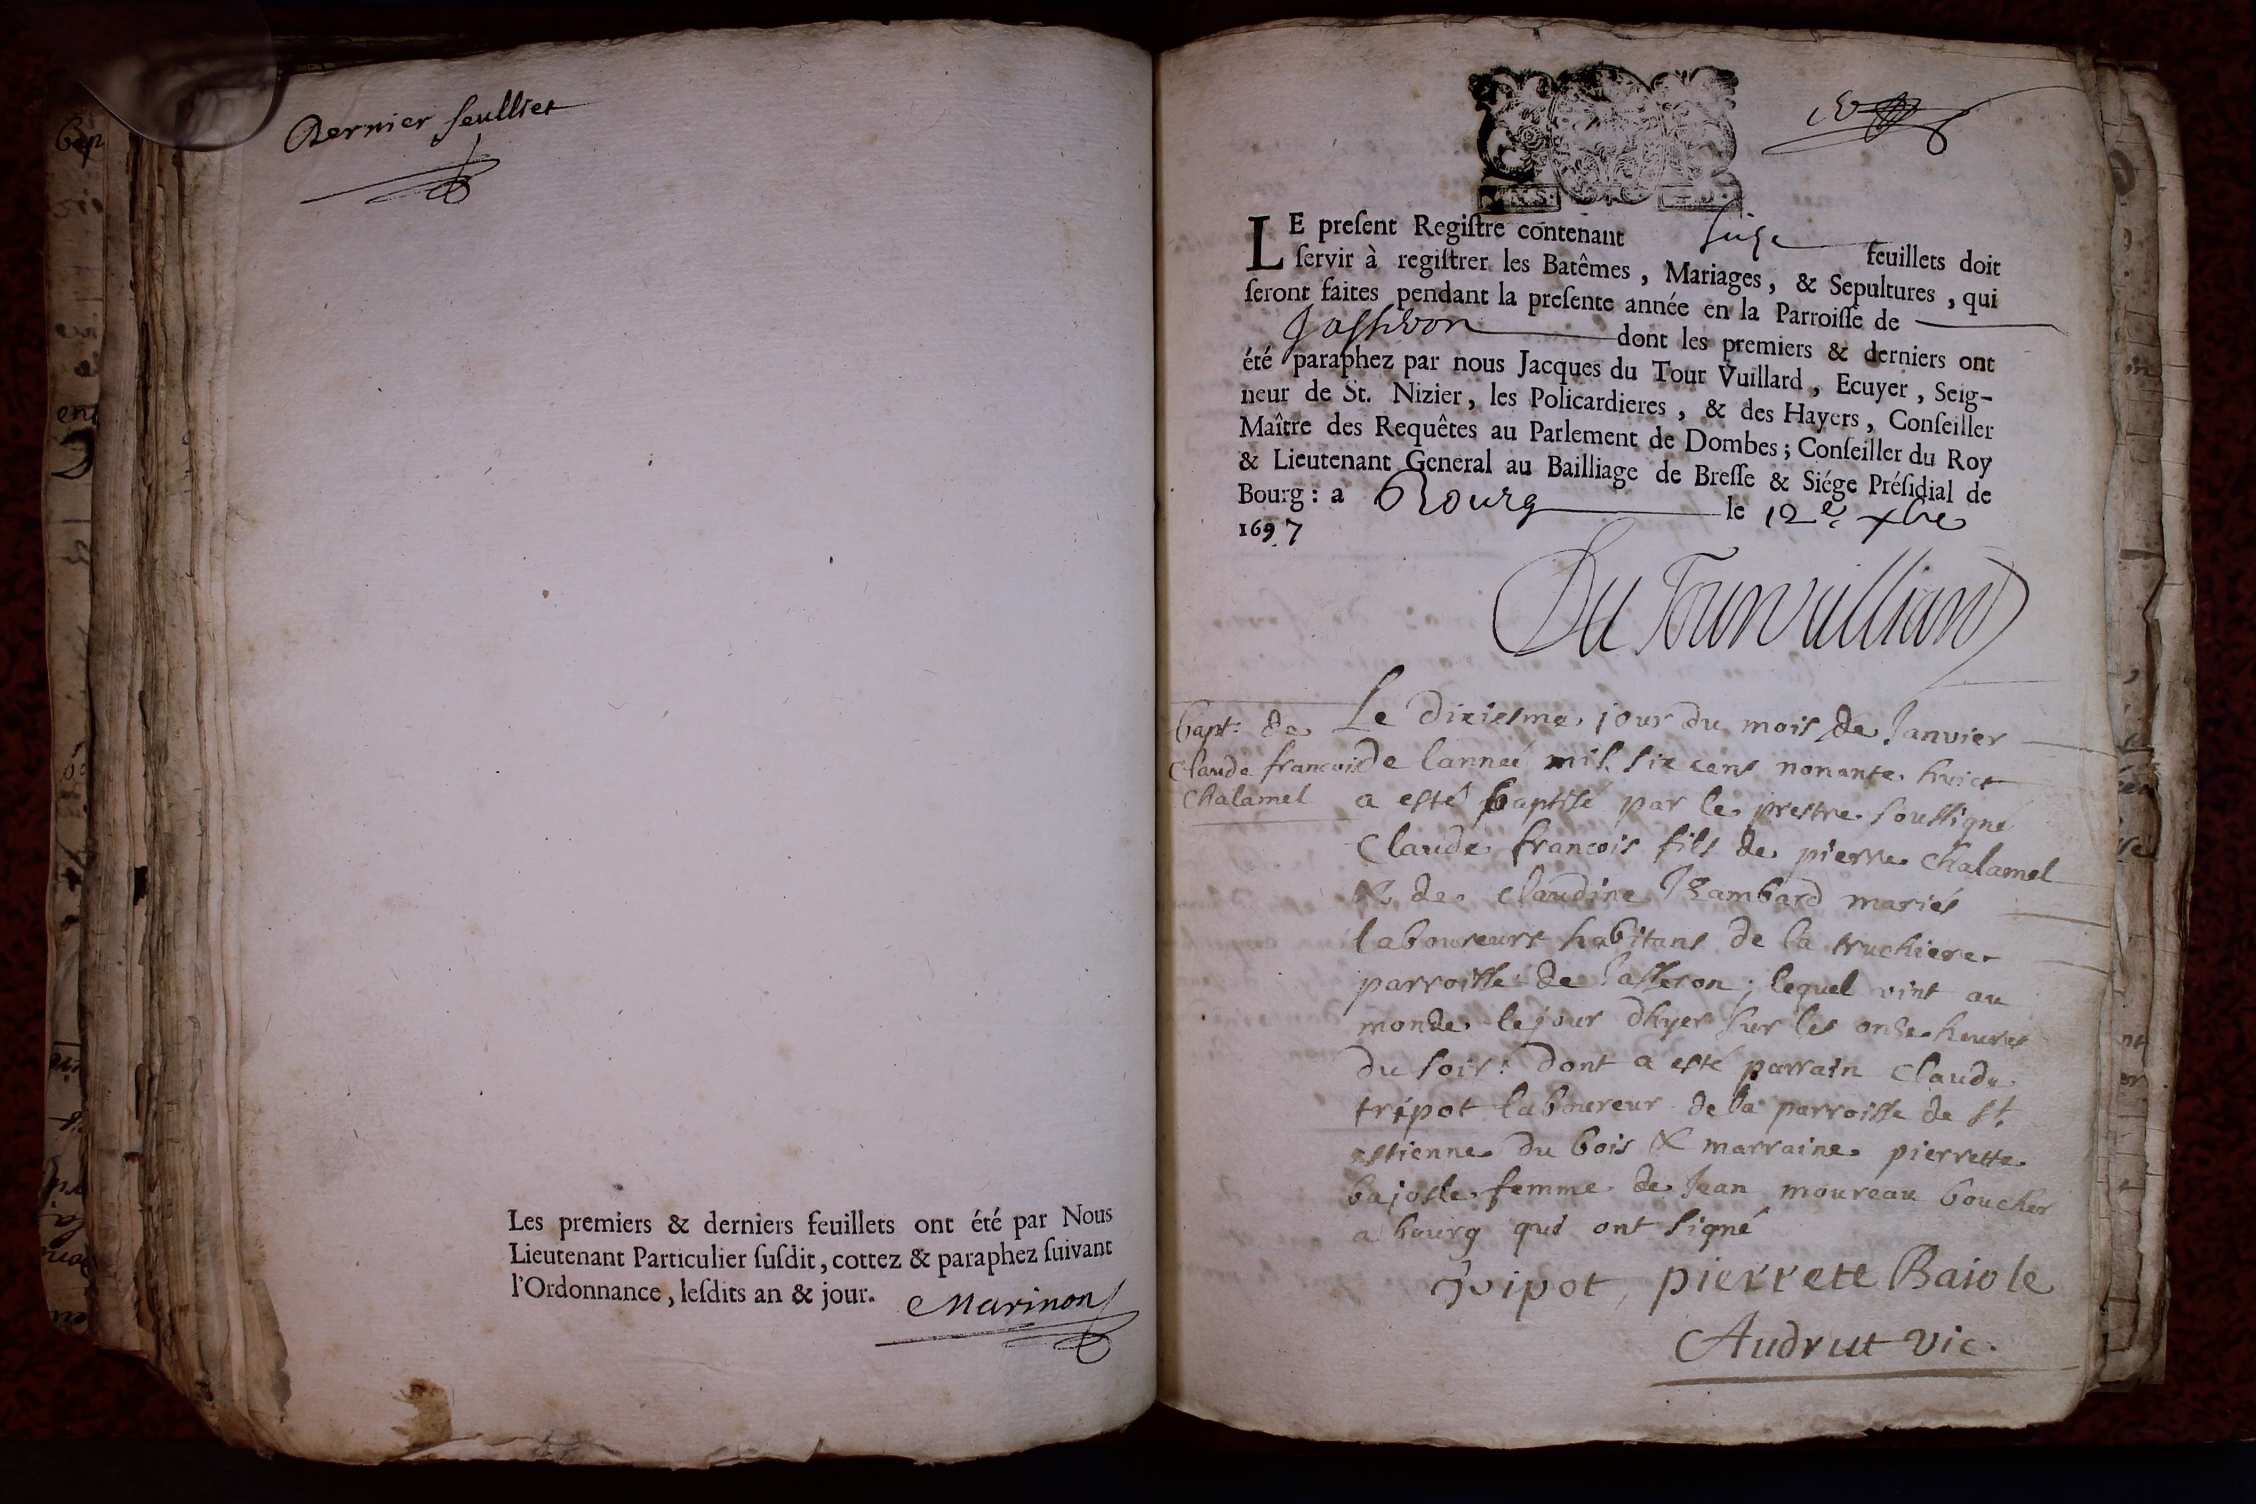 Dernier feulliet
Les premiers & derniers feuillets ont été par Nous
Lieutenant Particulier ſuſdit, cottez & paraphez ſuivant
l'Ordonnance, leſdits an & jour.
Marinon
LE preſent Regiſtre contenant ſeize feuillets doit
ſervir à regiſtrer les Batêmes, Mariages, & Sepultures, qui
ſeront faites pendant la preſente année en la Parroiſſe de
Jasseron dont les premiers & derniers ont
été paraphez par nous Jacques du Tour Vuillard, Ecuyer, Seig-
neur de St. Nizier, les Policardieres, & des Hayers, Conſeiller
Maître des Requêtes au Parlement de Dombes; Conſeiller du Roy
& Lieutenant General au Bailliage de Breſſe & Siége Préſidial de
Bourg: a Bourg le 12e xbre
1697
Bapt: de
Claude francois
Chalamel
Le dixiesme jour du mois de Janvier
de lanneé mil six cens nonante huict
a esté baptisé par le prestre soussigne
Claude francois fils de pierre chalamel
& de claudine Rambard mariés
laboureurs habitans de la truchiere
parroisse de Jasseron; lequel vint au
monde le jour dhyer sur les onze heures
du soir: dont a esté parrain claude
tripot laboureur de la parroisse de st.
estienne du bois & marraine pierrette
bajosle femme de Jean moureau boucher
a bourg qui ont signé
Tripot pierrete Baiole
Audrut vic.